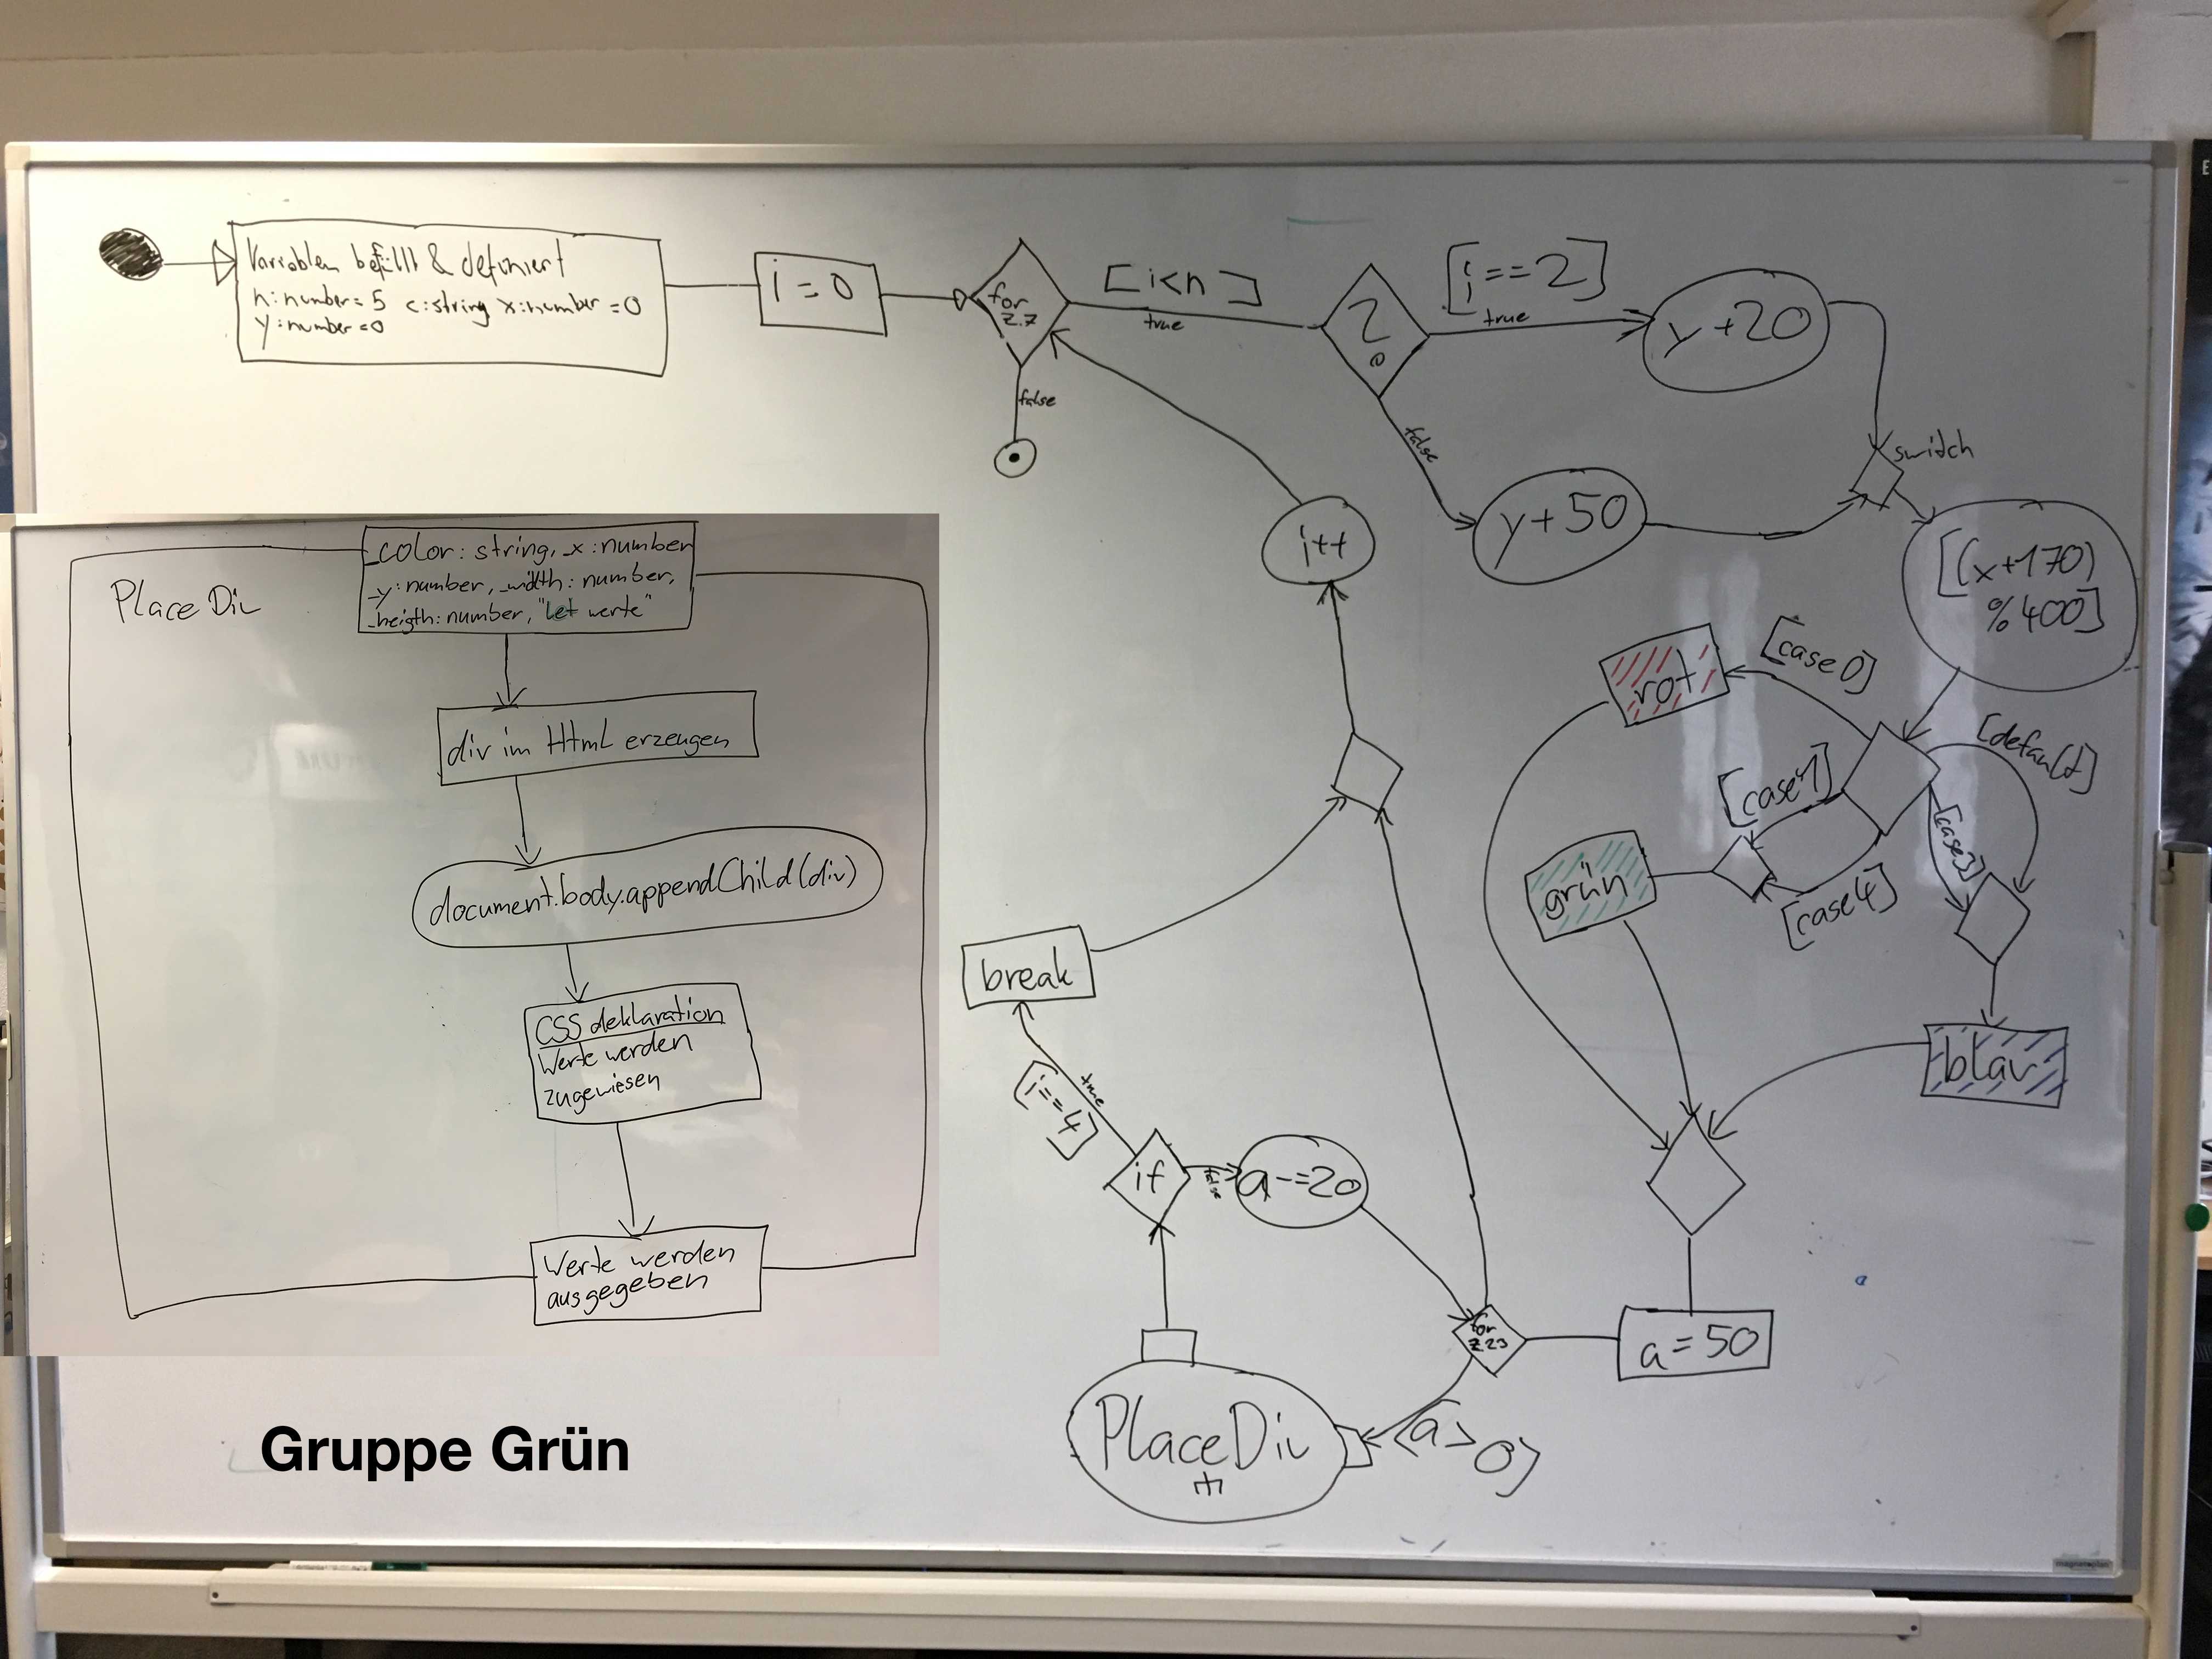 Variablen befüllt & definiert
n:number=5 c:string x:number=0
y:number=0
i=0
for
z.7
[i<n]
true
false
?
[i==2]
true
y+20
false
y+50
switch
[(x+170)
%400]
i++
[case 0]
rot
[default]
[case 1]
[case 3]
grün
[case 4]
blau
break
[i==4]
true
if
a-=20
for
z23
a=50
[a>
0]
PlaceDiv
PlaceDiv
_color: string, _x:number
_y:number, _width: number,
_heigth: number, "let werte"
div im Html erzeugen
document.body.appendChild(div)
CSS deklaration
Werte werden
zugewiesen
Werte werden
ausgegeben
Gruppe Grün
magnetoplan
E